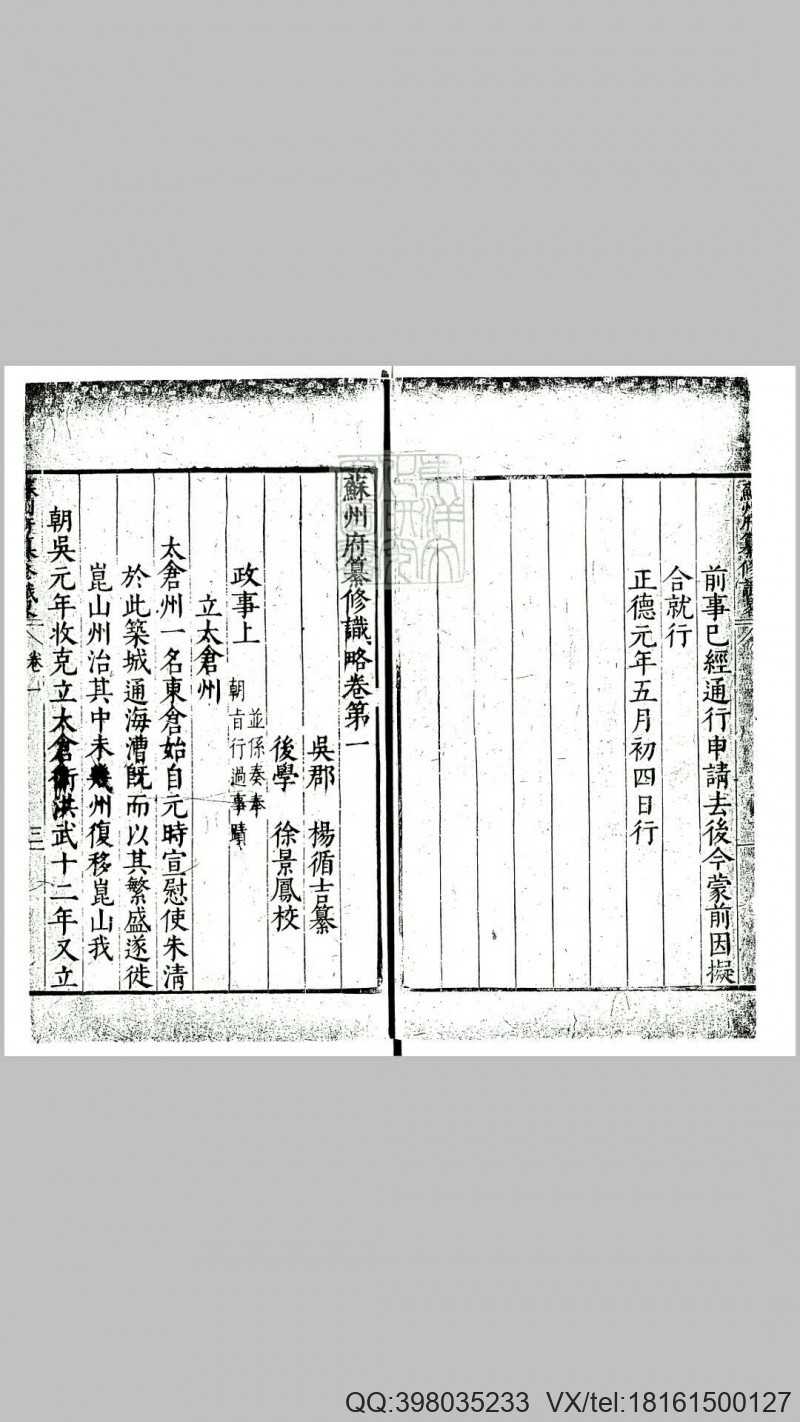 蘇州府纂修識略
前事已經通行申請去後今蒙前因擬
合就行
正德元年五月初四日行
蘇州府纂修識略卷第一
吳郡 楊循吉纂
後學 徐景鳳校
政事上 並係奏奉
朝旨行過事蹟
立太倉州
太倉州一名東倉始自元時宣慰使朱清
於此築城通海漕旣而以其繁盛遂徙
崑山州治其中未幾州復移崑山我
朝吳元年收克立太倉衛洪武十二年又立
蘇州府纂修識略 卷一 三
QQ:398035233 VX/tel:18161500127